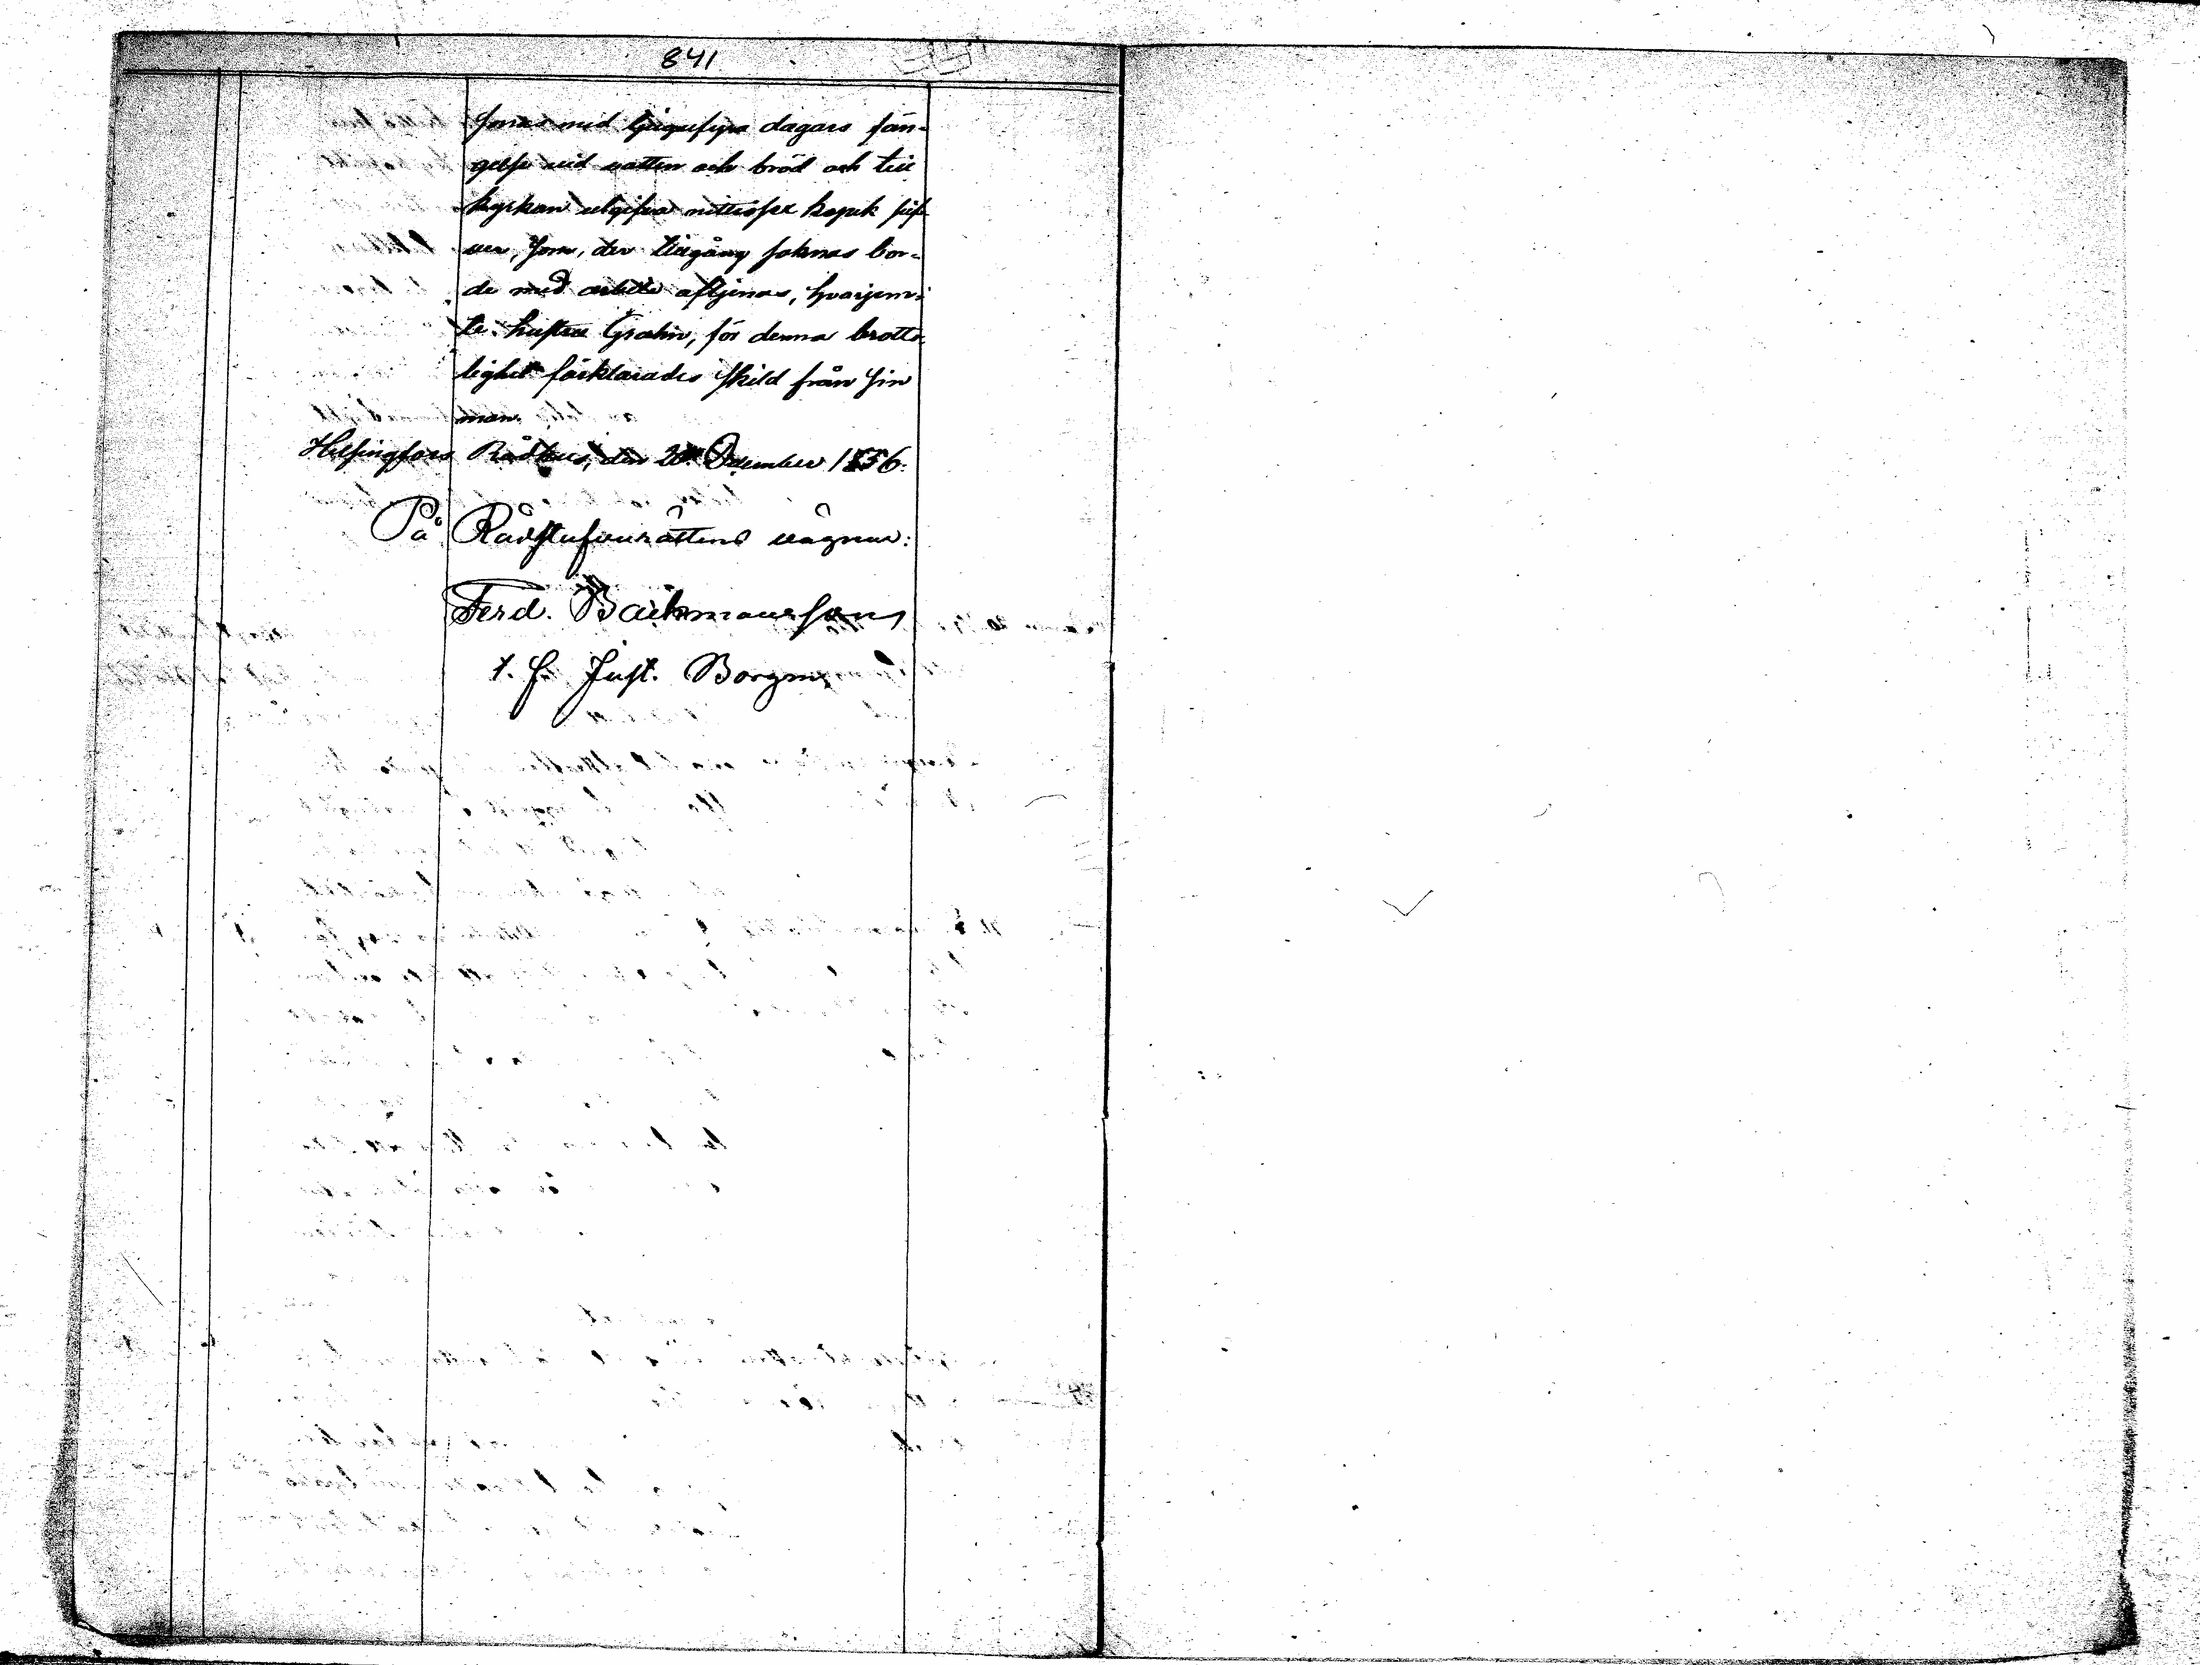 841
sonas med tjugufyra dagars fän-
gelse vid vatten och bröd och till
kyrkan utgifva nittiosex kopek silf-
ver, som, der tillgång saknas bor-
de med arbete aftjenas, hvarjem-
te hustru Grahn, för denna brotts-
lighet förklarades skild från sin
man.
Helsingfors Rådhus, den 20 December 1856.
På Rådstufvurättens vägnar:
Ferd. Backmansson
t. f. Just. Borgm.